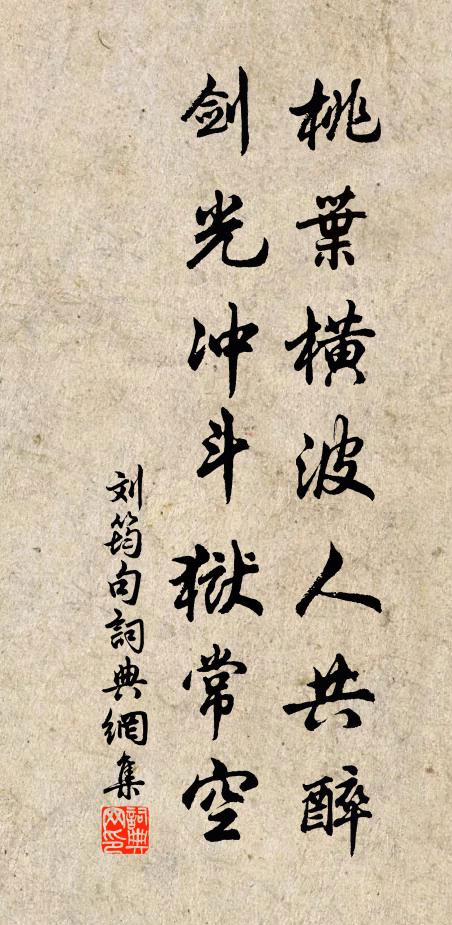 桃葉橫波人共醉
剑光冲斗獄常空
刘筠句詞典網集
詞典
网印